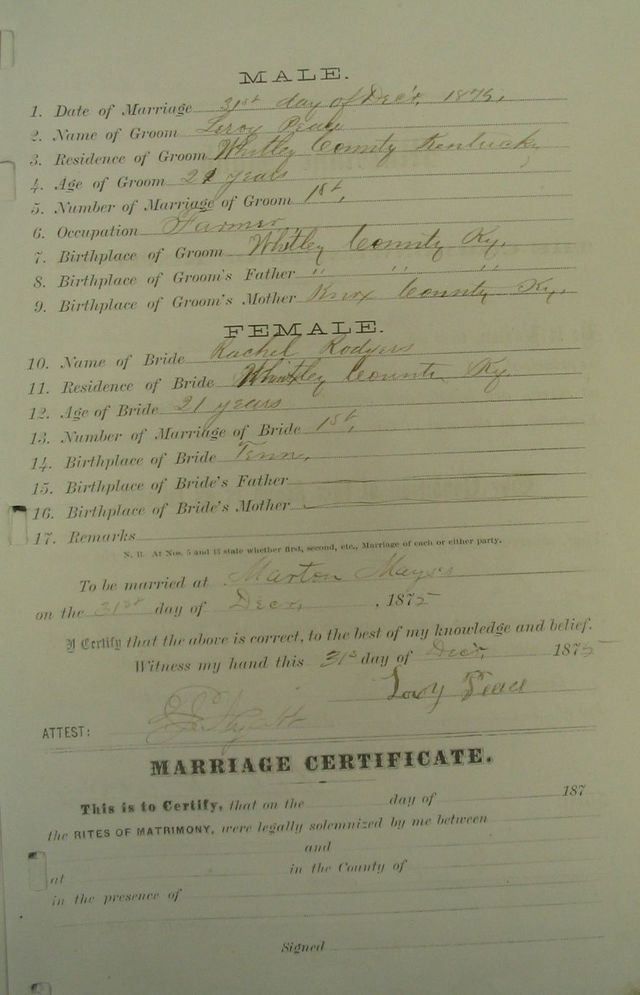 MALE.
1. Date of Marriage 31st day of Dec'r, 1875,
2. Name of Groom Leroy Peace
3. Residence of Groom Whitley County Kentucky
4. Age of Groom 21 years
5. Number of Marriage of Groom 1st,
6. Occupation Farmer
7. Birthplace of Groom Whitley County Ky.
8. Birthplace of Groom's Father " " "
9. Birthplace of Groom's Mother Knox County Ky.
FEMALE.
10. Name of Bride Rachel Rodgers
11. Residence of Bride Whitley County Ky.
12. Age of Bride 21 years
13. Number of Marriage of Bride 1st,
14. Birthplace of Bride Tenn,
15. Birthplace of Bride's Father
16. Birthplace of Bride's Mother
17. Remarks
N. B. At Nos. 5 and 13 state whether first, second, etc., Marriage of each or either party.
To be married at Marton Mayes
on the 31st day of Dec'r, , 1875
I Certify that the above is correct, to the best of my knowledge and belief.
Witness my hand this 31st day of Dec'r, 1875
Peace
ATTEST:
MARRIAGE CERTIFICATE.
This is to Certify, that on the day of 187
the RITES OF MATRIMONY, were legally solemnized by me between
and
at in the County of
in the presence of
Signed